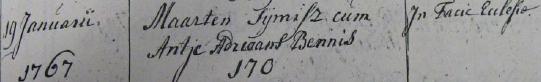 19 Januarii
1767
Maarten Sijmisz cum
Antje Adriaans Bennis
170
In Facie Eclesiæ